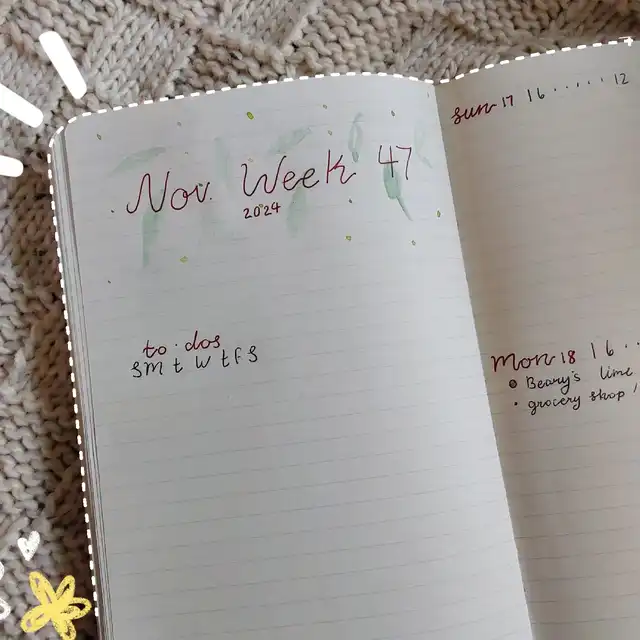 Nov. Week 47
2024
to·dos
s m t w t f s
sun 17 16 ...... 12
Mon 18 16 ..
Beary's line
grocery shop /